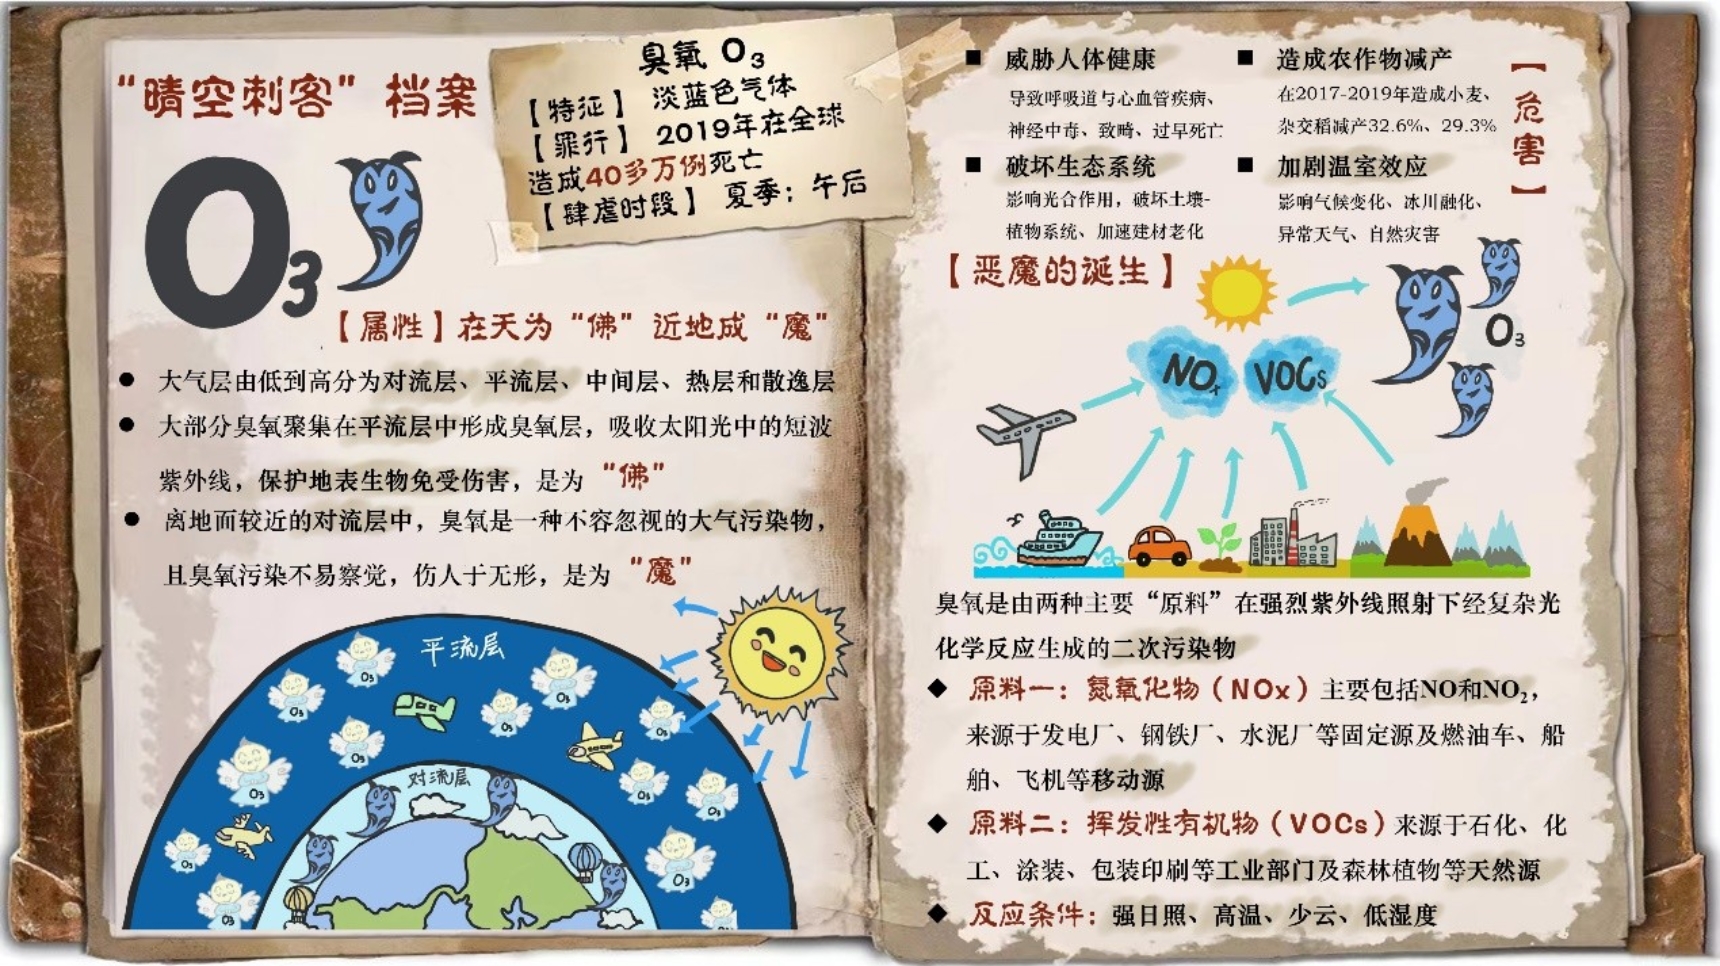 “晴空刺客”档案
臭氧 O₃
【特征】 淡蓝色气体
【罪行】 2019年在全球
造成40多万例死亡
【肆虐时段】 夏季：午后
O₃
【属性】在天为“佛”近地成“魔”
● 大气层由低到高分为对流层、平流层、中间层、热层和散逸层
● 大部分臭氧聚集在平流层中形成臭氧层，吸收太阳光中的短波
紫外线，保护地表生物免受伤害，是为 “佛”
● 离地面较近的对流层中，臭氧是一种不容忽视的大气污染物，
且臭氧污染不易察觉，伤人于无形，是为 “魔”
平流层
O₃
O₃
O₃
O₃
O₃
O₃
O₃
O₃
O₃
O₃
O₃
O₃
对流层
【危害】
■ 威胁人体健康
导致呼吸道与心血管疾病、
神经中毒、致畸、过早死亡
■ 造成农作物减产
在2017-2019年造成小麦、
杂交稻减产32.6%、29.3%
■ 破坏生态系统
影响光合作用，破坏土壤-
植物系统、加速建材老化
■ 加剧温室效应
影响气候变化、冰川融化、
异常天气、自然灾害
【恶魔的诞生】
NOₓ
VOCs
O₃
臭氧是由两种主要“原料”在强烈紫外线照射下经复杂光
化学反应生成的二次污染物
◆ 原料一：氮氧化物（NOx）主要包括NO和NO₂，
来源于发电厂、钢铁厂、水泥厂等固定源及燃油车、船
舶、飞机等移动源
◆ 原料二：挥发性有机物（VOCs）来源于石化、化
工、涂装、包装印刷等工业部门及森林植物等天然源
◆ 反应条件：强日照、高温、少云、低湿度